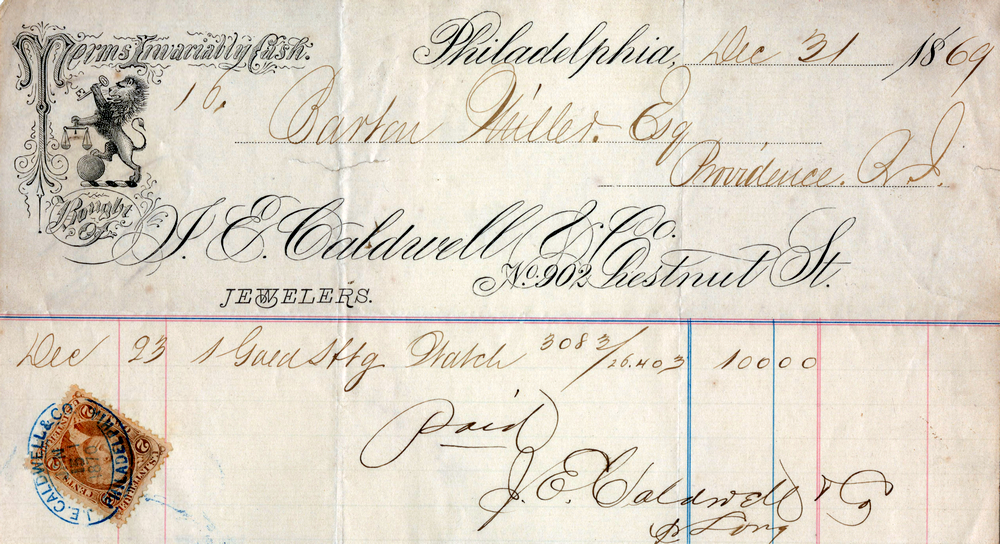 Terms Invariably Cash.
Philadelphia, Dec 31 1869
To.
Barton Miller. Esq
Providence. R. I.
Bought of
J. E. Caldwell & Co.
No. 902 Chestnut St.
JEWELERS.
Dec 23 1 Gold Watch 3083/26.403 100 00
Paid
J. E. Caldwell & Co
pr Long
J.E. CALDWELL & CO.
PHILADELPHIA
2 CENTS 2